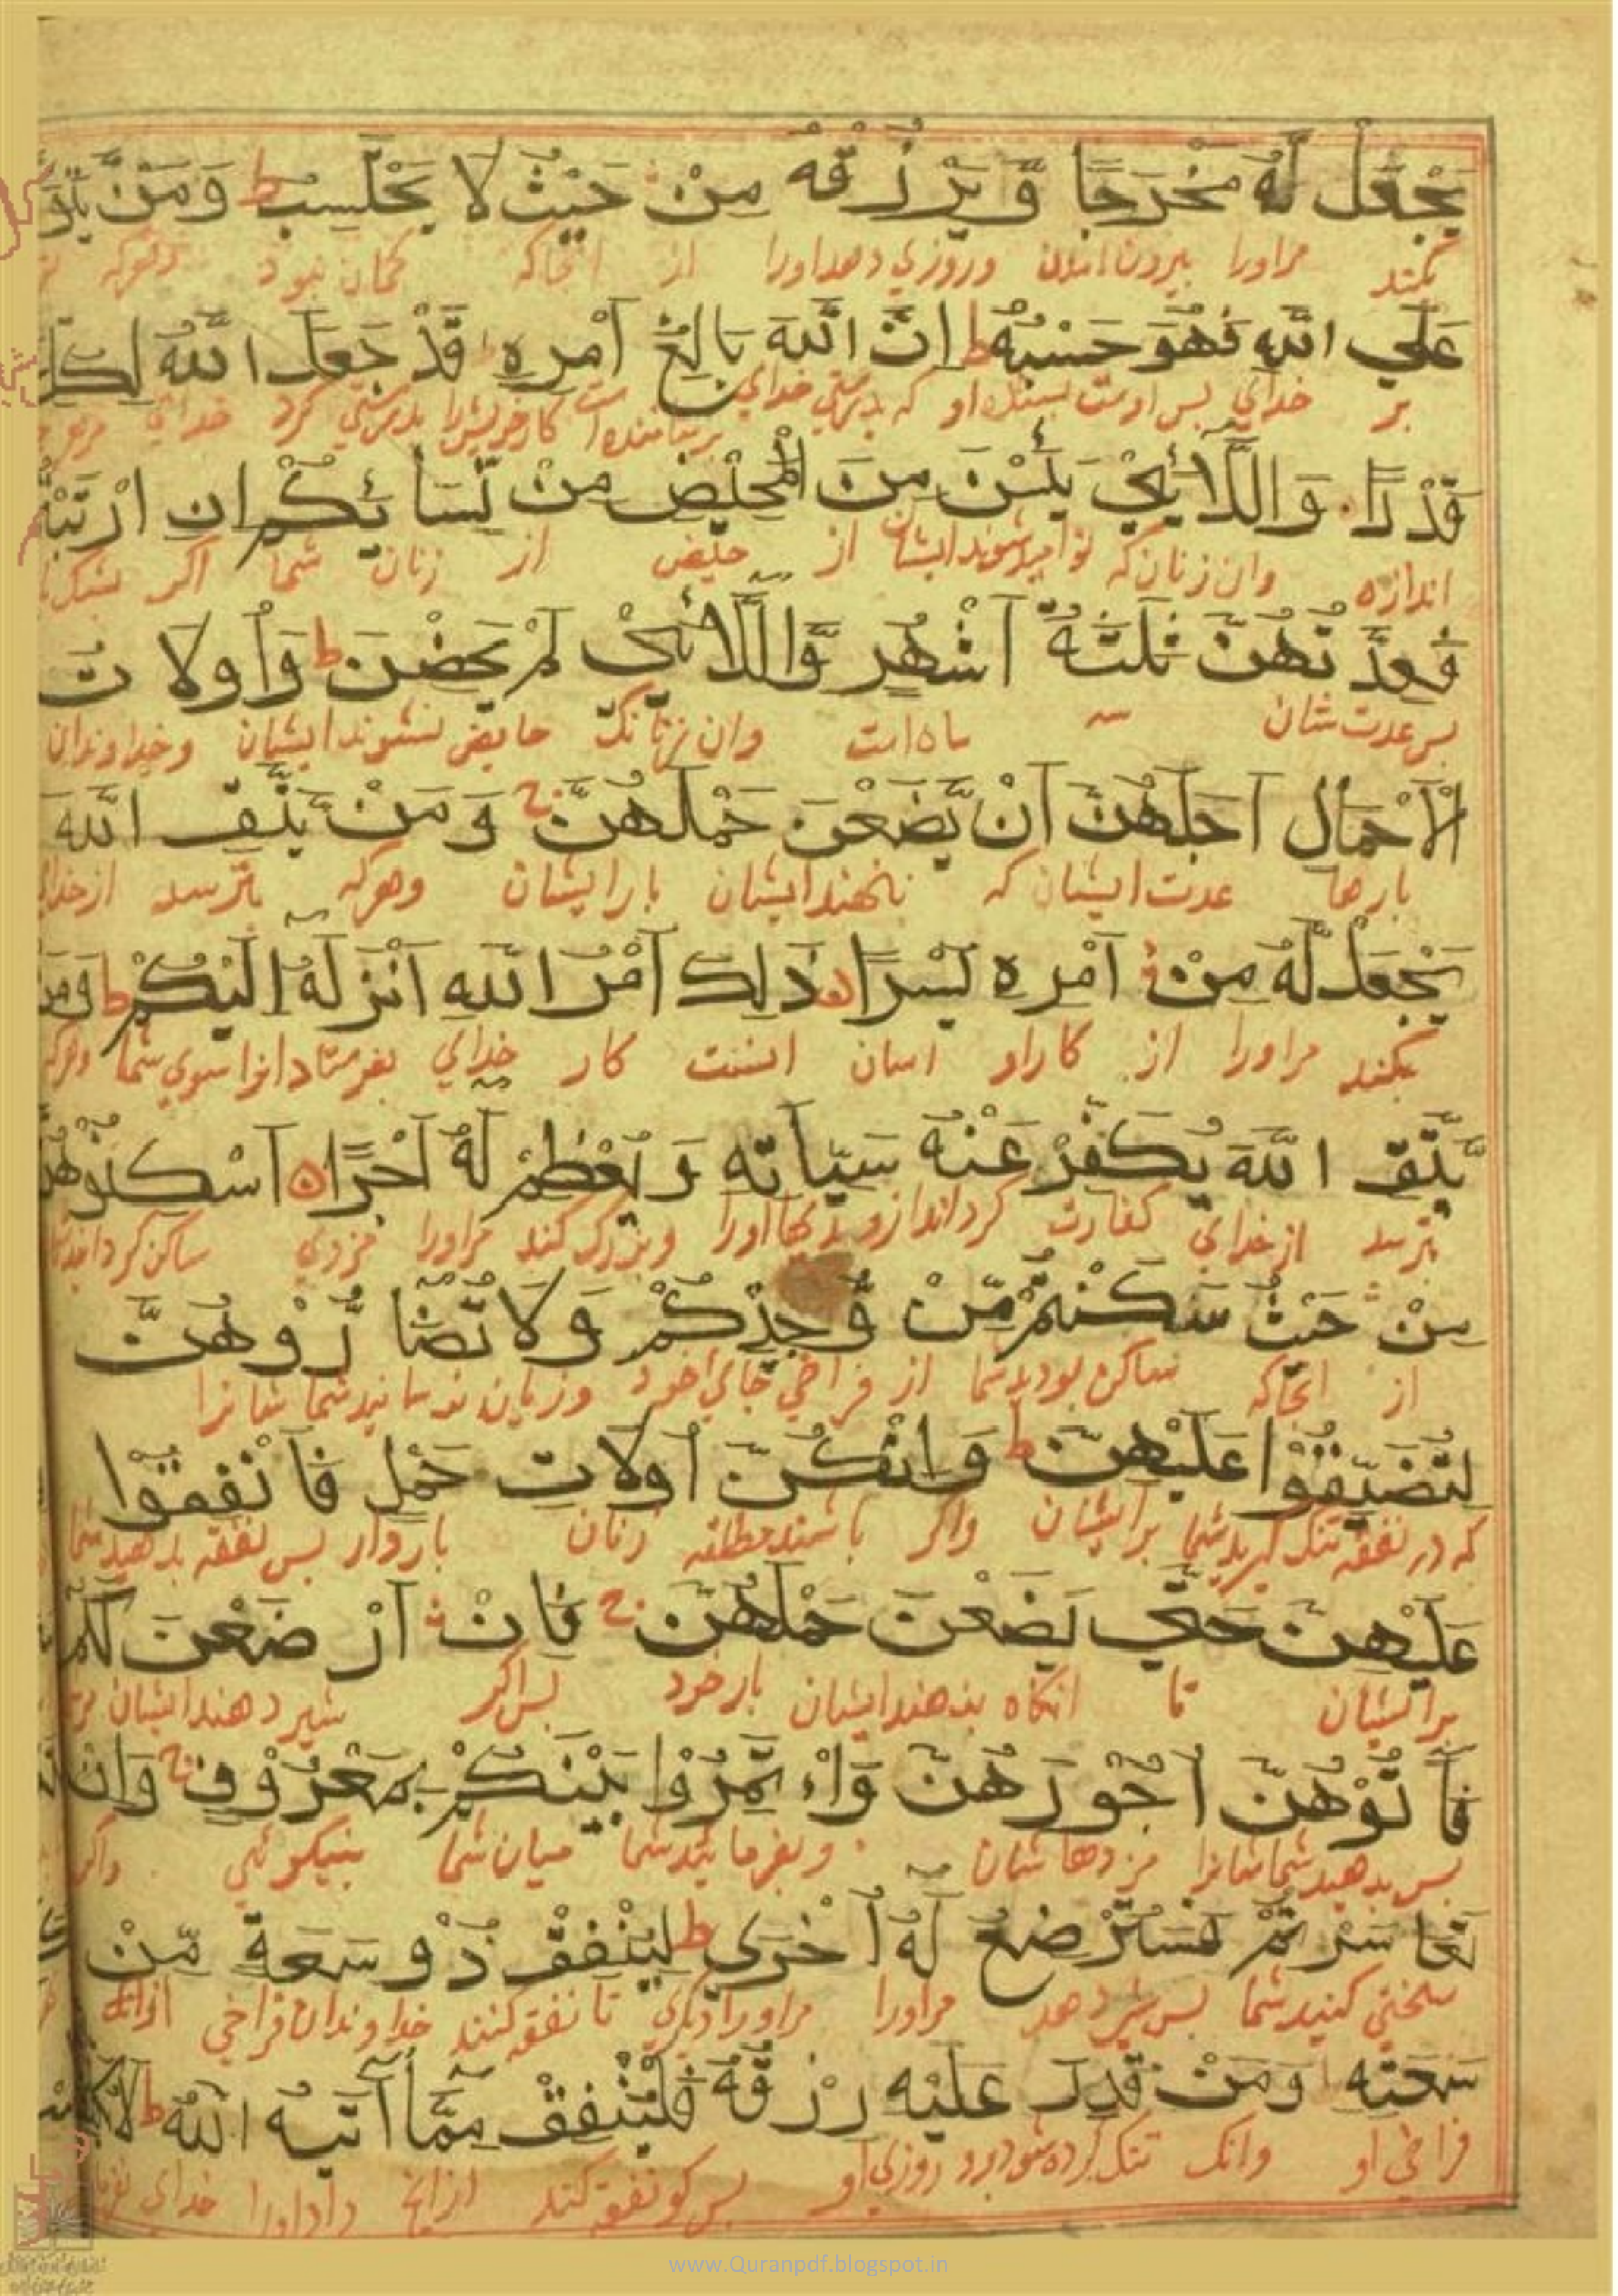 يَجْعَلْ لَهُ مَخْرَجًا وَّيَرْزُقْهُ مِنْ حَيْثُ لَا يَحْتَسِبُ ط وَمَنْ
بکند مراورا بیرون آمدن وروزی دهد اورا از انجاکه کمان نبود وهرکه
عَلَي اللهِ فَهُوَ حَسْبُهُ ط اِنَّ اللهَ بَالِغُ اَمْرِهِ قَدْ جَعَلَ اللهُ لِكُلِّ
بر خدای بس اوست بسنده او که بدرستی خدای رساننده است کارخویشرا بدرستی کرد خدای
قَدْرًا وَاللَّائِيْ يَئِسْنَ مِنَ الْمَحِيْضِ مِنْ نِّسَائِكُمْ اِنِ
اندازه وان زنان که نوامید شوند ایشان از حیض از زنان شما اکر
فَعِدَّتُهُنَّ ثَلٰثَةُ اَشْهُرٍ وَّاللَّائِيْ لَمْ يَحِضْنَ ط وَاُولَاتُ
بس عدت شان سه ماه است وان زنانک حایض نشوند ایشان وخداوندان
الْاَحْمَالِ اَجَلُهُنَّ اَنْ يَّضَعْنَ حَمْلَهُنَّ ج وَمَنْ يَتَّقِ اللهَ
بارها عدت ایشان که بنهند ایشان بار ایشان وهرکه بترسد ازخدای
يَجْعَلْ لَّهُ مِنْ اَمْرِهِ يُسْرًا ذٰلِكَ اَمْرُ اللهِ اَنْزَلَهُ اِلَيْكُمْ ط وَمَنْ
بکند مراورا از کار او اسان اینست کار خدای بفرستاد انرا سوی شما وهرکه
يَّتَّقِ اللهَ يُكَفِّرْ عَنْهُ سَيِّاٰتِهِ وَيُعْظِمْ لَهُ اَجْرًا اَسْكِنُوْهُنَّ
بترسد ازخدای کفارت کرداند ازو بدیها اورا وبزرک کند مراورا مزدی ساکن کردانید
مِنْ حَيْثُ سَكَنْتُمْ مِّنْ وُّجْدِكُمْ وَلَا تُضَارُّوْهُنَّ
از انجاکه ساکن بودید شما از فراخی جای خود وزیان نرسانید شما شانرا
لِتُضَيِّقُوْا عَلَيْهِنَّ ط وَاِنْ كُنَّ اُولَاتِ حَمْلٍ فَاَنْفِقُوْا
که در نفقه تنک کیرید شما بر ایشان واکر باشند مطلقه زنان باردار بس نفقه بدهید شما
عَلَيْهِنَّ حَتّٰي يَضَعْنَ حَمْلَهُنَّ ج فَاِنْ اَرْضَعْنَ لَكُمْ
بر ایشان تا انکاه بنهند ایشان بار خود بس اکر شیر دهند ایشان
فَاٰتُوْهُنَّ اُجُوْرَهُنَّ وَاْتَمِرُوْا بَيْنَكُمْ بِمَعْرُوْفٍ ج وَاِنْ
بس بدهید شما شانرا مزدها شان وبفرمائید شما میان شما بنیکوئی واکر
تَعَاسَرْتُمْ فَسَتُرْضِعُ لَهُ اُخْرَى ط لِيُنْفِقْ ذُوْ سَعَةٍ مِّنْ
سختی کنید شما بس شیر دهد مراورا مراورا دیکری تا نفقه کنند خداوندان فراخی از
سَعَتِهِ وَمَنْ قُدِرَ عَلَيْهِ رِزْقُهُ فَلْيُنْفِقْ مِمَّا اٰتٰىهُ اللهُ ط
فراخی او وانک تنک کرده شود برو روزی او بس کو نفقه کند ازانچ داد اورا خدای
www.Quranpdf.blogspot.in